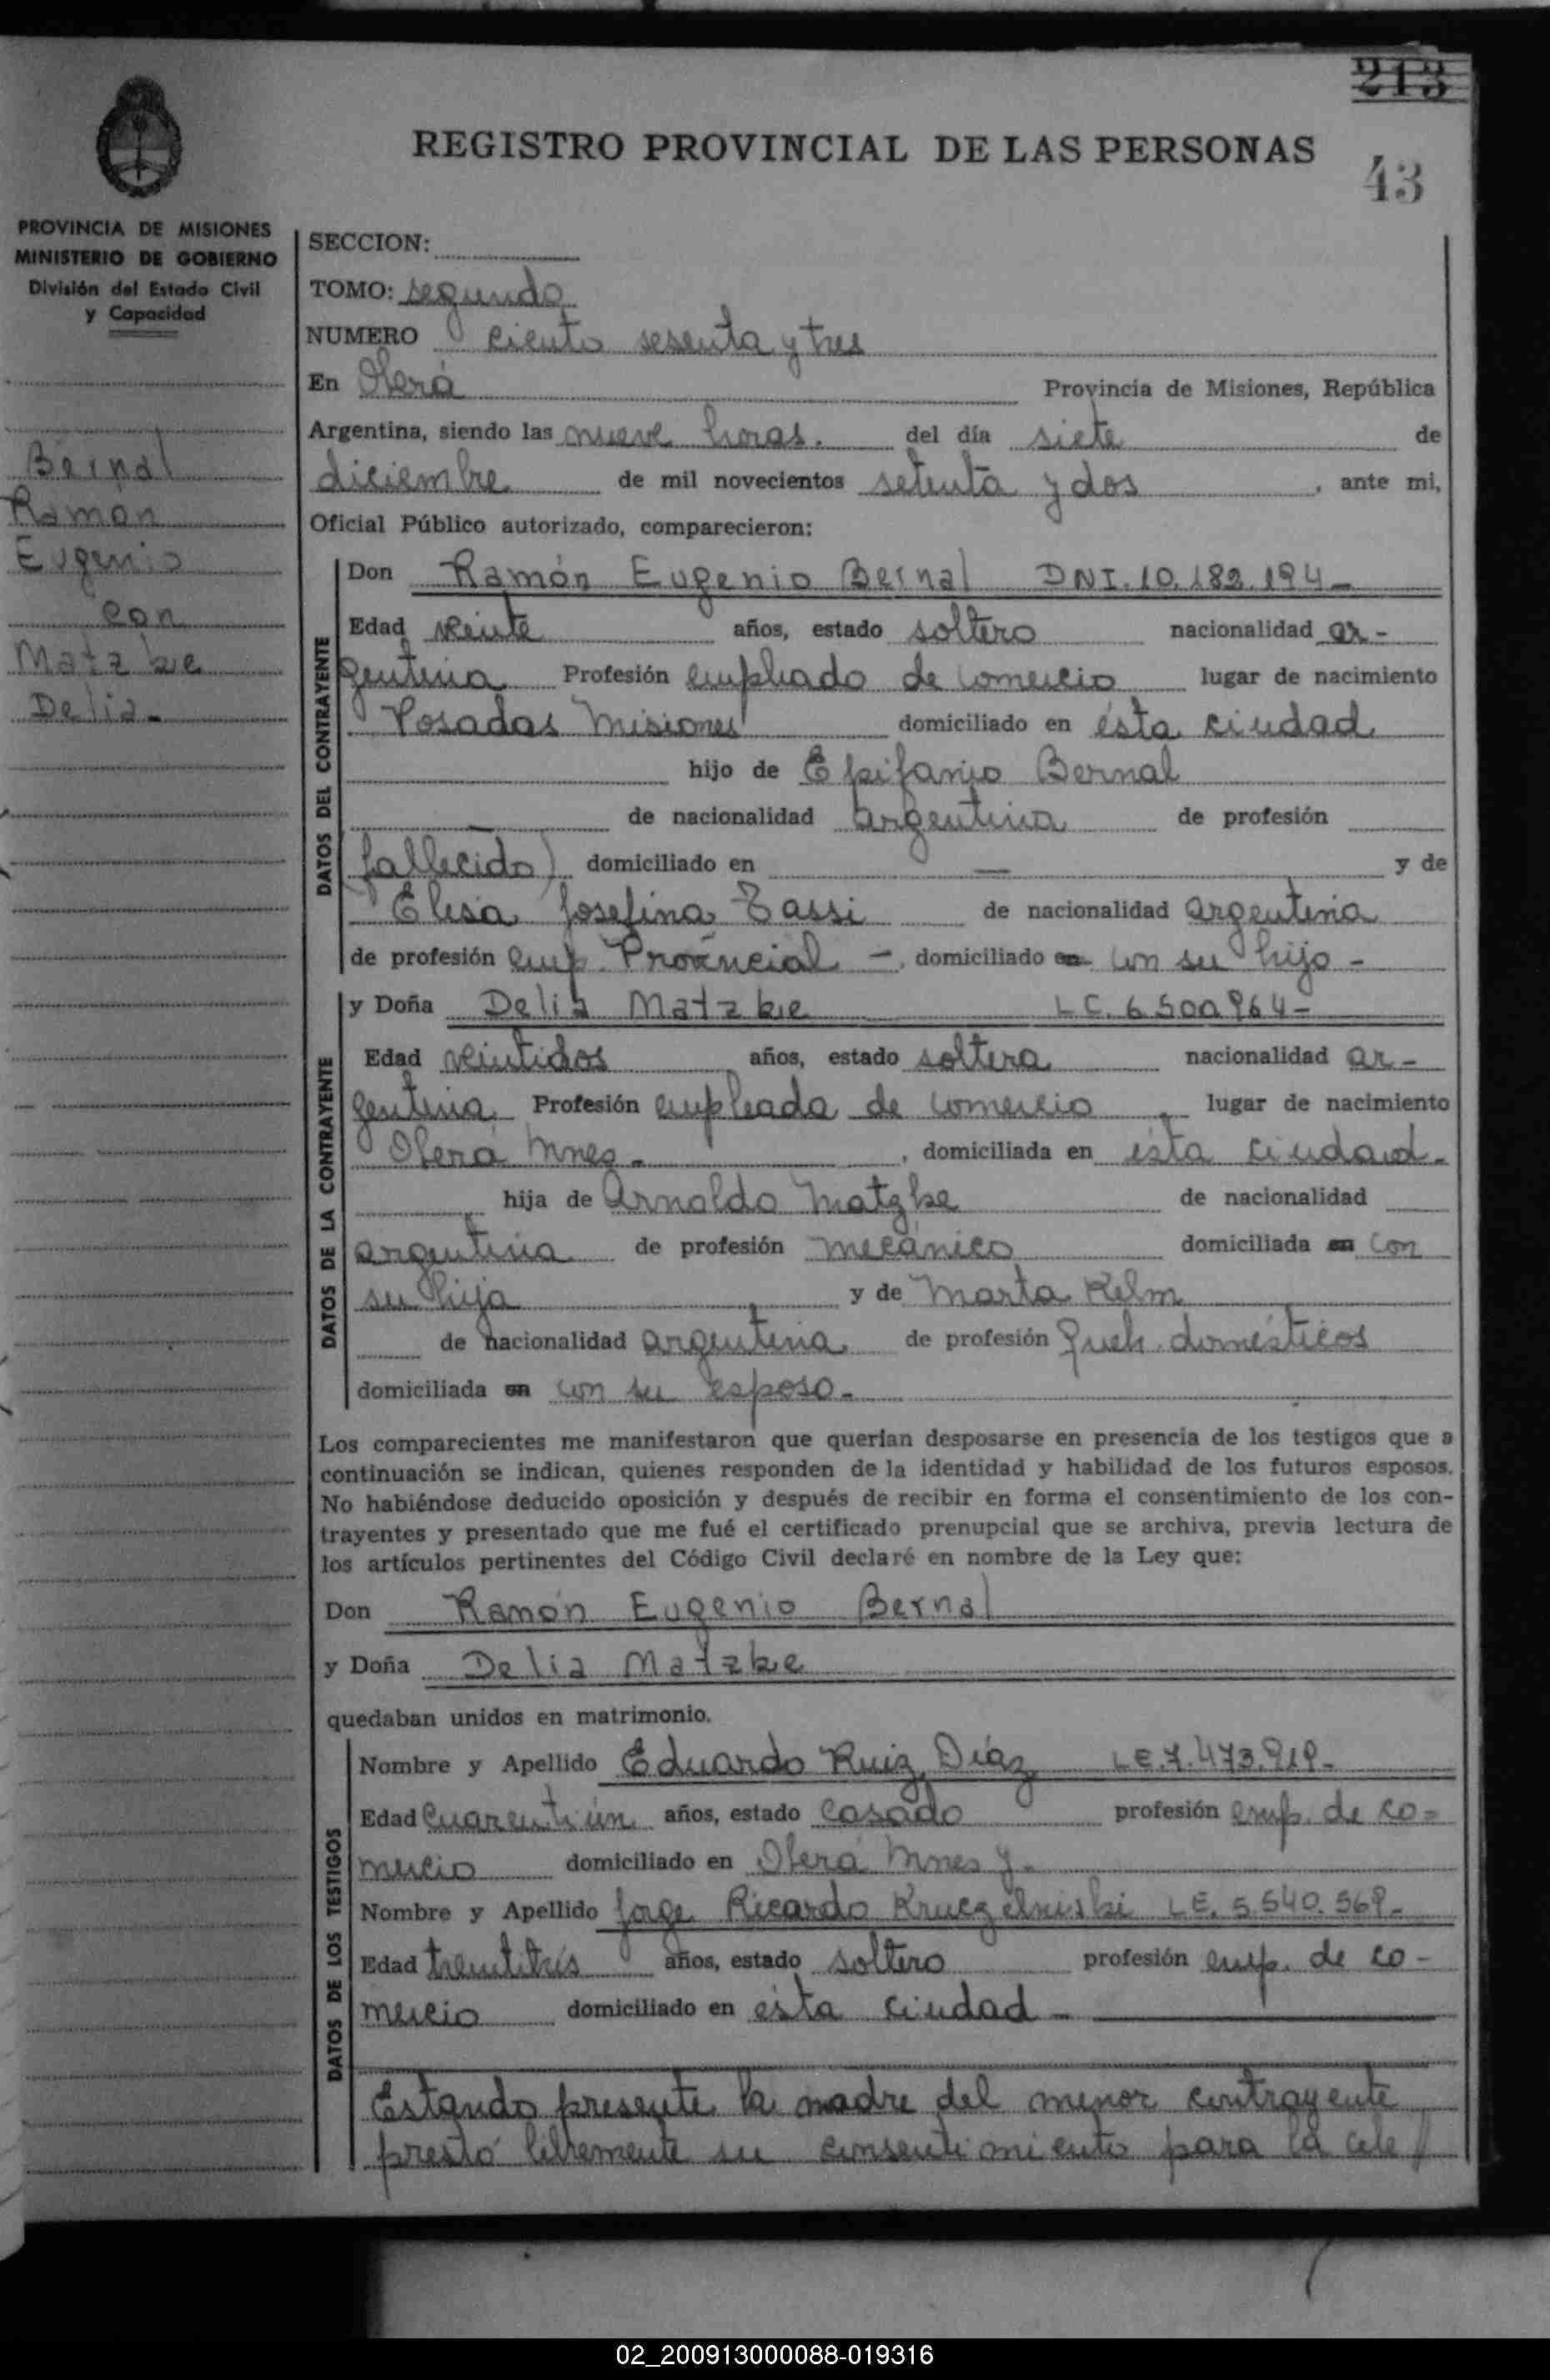 213
REGISTRO PROVINCIAL DE LAS PERSONAS
43
PROVINCIA DE MISIONES
MINISTERIO DE GOBIERNO
División del Estado Civil
y Capacidad
Bernal
Ramón
Eugenio
con
Matzke
Delia-
SECCION:
TOMO: segundo
NUMERO ciento sesenta y tres
En Oberá Provincia de Misiones, República
Argentina, siendo las nueve horas. del día siete de
diciembre de mil novecientos setenta y dos, ante mi,
Oficial Público autorizado, comparecieron:
DATOS DEL CONTRAYENTE
Don Ramón Eugenio Bernal DNI.10.182.194-
Edad veinte años, estado soltero nacionalidad ar-
gentina Profesión empleado de comercio lugar de nacimiento
Posadas Misiones domiciliado en ésta ciudad
hijo de Epifanio Bernal
de nacionalidad argentina de profesión
fallecido) domiciliado en — y de
Elisa Josefina Tassi de nacionalidad argentina
de profesión emp. Provincial -, domiciliado en con su hijo -
DATOS DE LA CONTRAYENTE
y Doña Delia Matzke LC. 6.500964-
Edad veintidos años, estado soltera nacionalidad ar-
gentina Profesión empleada de comercio, lugar de nacimiento
Oberá Mnes-, domiciliada en ésta ciudad-
hija de Arnoldo Matzke de nacionalidad
argentina de profesión mecánico domiciliada en con
su hija y de Marta Kelm
de nacionalidad argentina de profesión queh. domésticos
domiciliada en con su esposo-
Los comparecientes me manifestaron que querían desposarse en presencia de los testigos que a
continuación se indican, quienes responden de la identidad y habilidad de los futuros esposos.
No habiéndose deducido oposición y después de recibir en forma el consentimiento de los con-
trayentes y presentado que me fué el certificado prenupcial que se archiva, previa lectura de
los artículos pertinentes del Código Civil declaré en nombre de la Ley que:
Don Ramón Eugenio Bernal
y Doña Delia Matzke
quedaban unidos en matrimonio.
DATOS DE LOS TESTIGOS
Nombre y Apellido Eduardo Ruiz Díaz LE.7.473.919-
Edad cuarentiún años, estado casado profesión emp. de co=
mercio domiciliado en Oberá Mnes y-
Nombre y Apellido Jorge Ricardo LE. 5.540.569-
Edad treintitrés años, estado soltero profesión emp. de co-
mercio domiciliado en ésta ciudad -
Estando presente la madre del menor contrayente
prestó libremente su consentimiento para la cele/
02_200913000088-019316